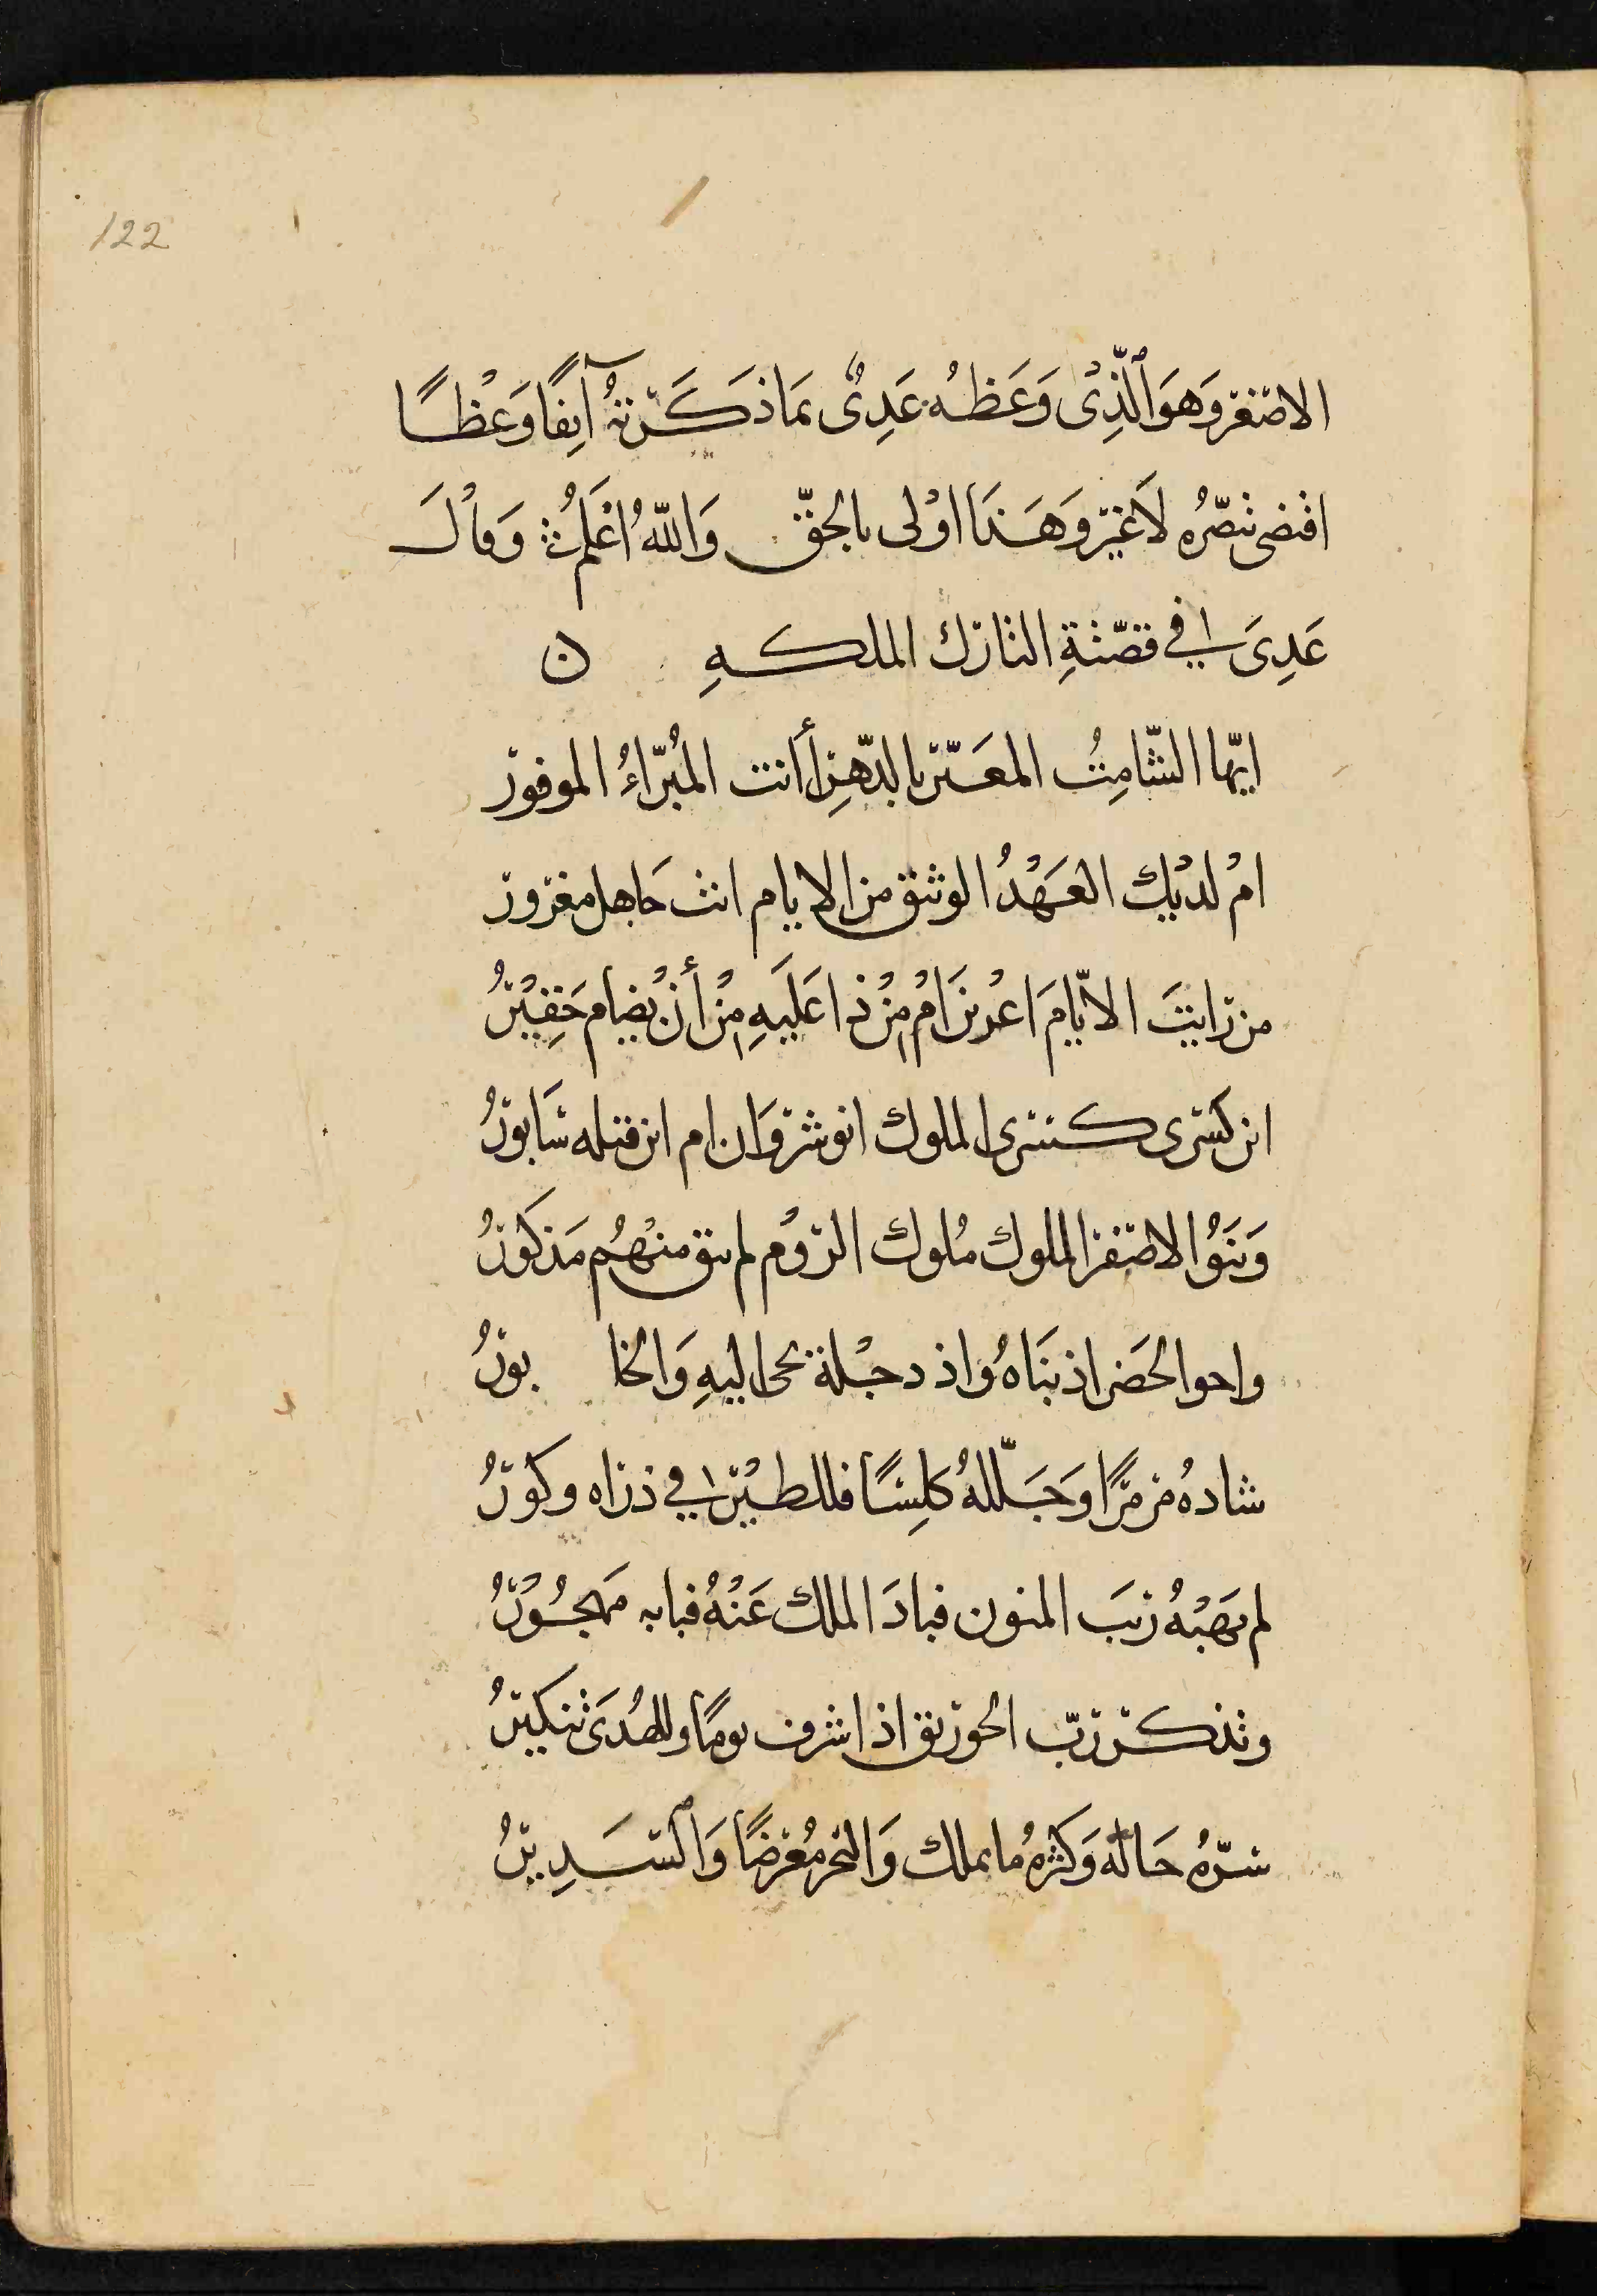 122
الاصغر وَهوَ ٱلّذِىْ وَعَظهُ عَدِىٌ بمَا ذكَرْتهُ آنِفًا وَعْظًا
اقتضى تنصّرُه لَا غيْر وَهَذَا اوْلى بالحقّ وَاللّهُ اعْلَمُ وَقاْلَ
عَدِىَ في قصّتةِ التارك الملكهِ ن
ايّها الشّامِتُ المعَيّر بالدّهرِ أأنت المُبرّاءُ الموفور
امْ لدَيْك العَهْدُ الوثيق من الايام انت جَاهل مغرور
من رايتَ الايّامَ اعْرينَ امْ مَنْ ذا عَلَيَهِ مِنْ أنْ يُضام خَفِيْرُ
اين كسْرى كسرى الملوك انوشروَان ام اين قتله سَابورُ
وَبَنوُا الاصفر الملوك مُلوك الروْم لم يبق منْهُم مَذكورُ
واحوا الحَضر اذ بَنَاهُ وَاذ دجْلة تحى اليهِ وَالخا بورُ
شادهُ مرْمرًا وَجَلّلهُ كلِسًا فللطيْر في ذراه وكورُ
لم يهَبْهُ رَيبَ المنون فبادَ الملك عَنْهُ فبابه مَهجُوْرُ
وتذكر ربّ الخورنق اذ اشرف يومًا وللهُدَى تفكيرُ
سرّهُ حَالهُ وَكثرهُ ما يملك وَالبحر مُعْرضًا وَٱلسَدِيرُ